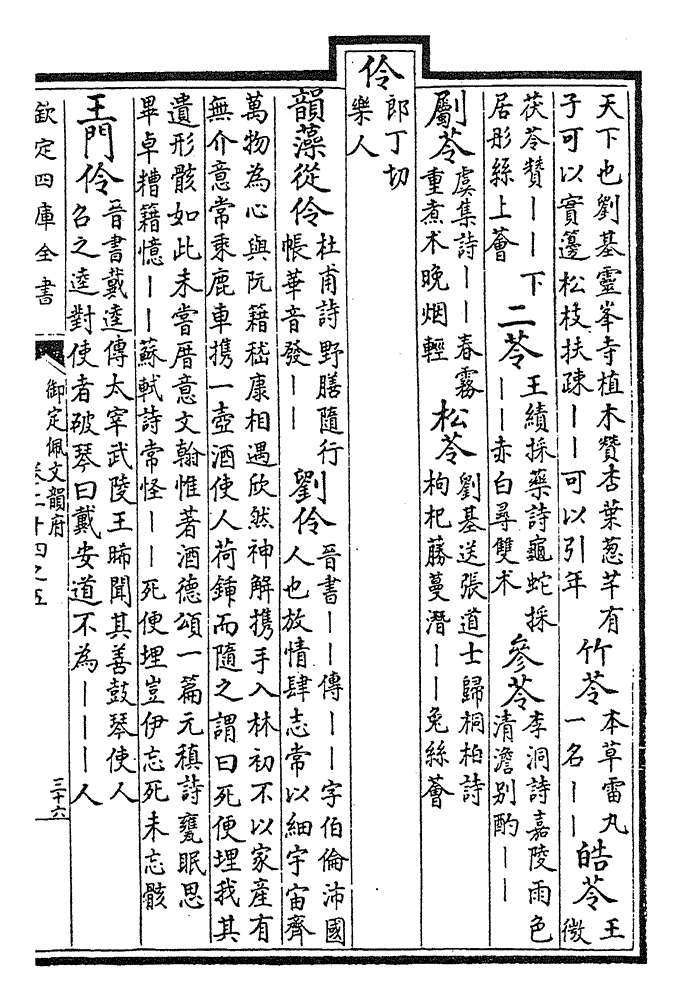 天下也劉基靈峯寺植木贊杏葉葱芊有
子可以實籩松枝扶疎——可以引年
竹苓
本草雷丸
一名——
皓苓
王
微
茯苓贊——下
居彤絲上薈
二苓
王績採藥詩龜蛇採
——赤白尋雙术
參苓
李洞詩嘉陵雨色
清澹别酌——
劚苓
虞集詩——春霧
重煮术晚烟輕
松苓
劉基送張道士歸桐柏詩
枸杞藤蔓潛——兔絲薈
伶
郎丁切
樂人
韻藻從伶
杜甫詩野膳隨行
帳華音發——
劉伶
晉書——傳——字伯倫沛國
人也放情肆志常以細宇宙齊
萬物為心與阮籍嵇康相遇欣然神解携手入林初不以家産有
無介意常乘鹿車携一壺酒使人荷鍤而隨之謂曰死便埋我其
遺形骸如此未嘗厝意文翰惟著酒德頌一篇元稹詩甕眠思
畢卓糟籍憶——蘇軾詩常怪——死便埋豈伊忘死未忘骸
王門伶
晉書戴逵傳太宰武陵王晞聞其善鼓琴使人
召之逵對使者破琴曰戴安道不為———人
欽定四庫全書
御定佩文韻府
卷二十四之五
三十六